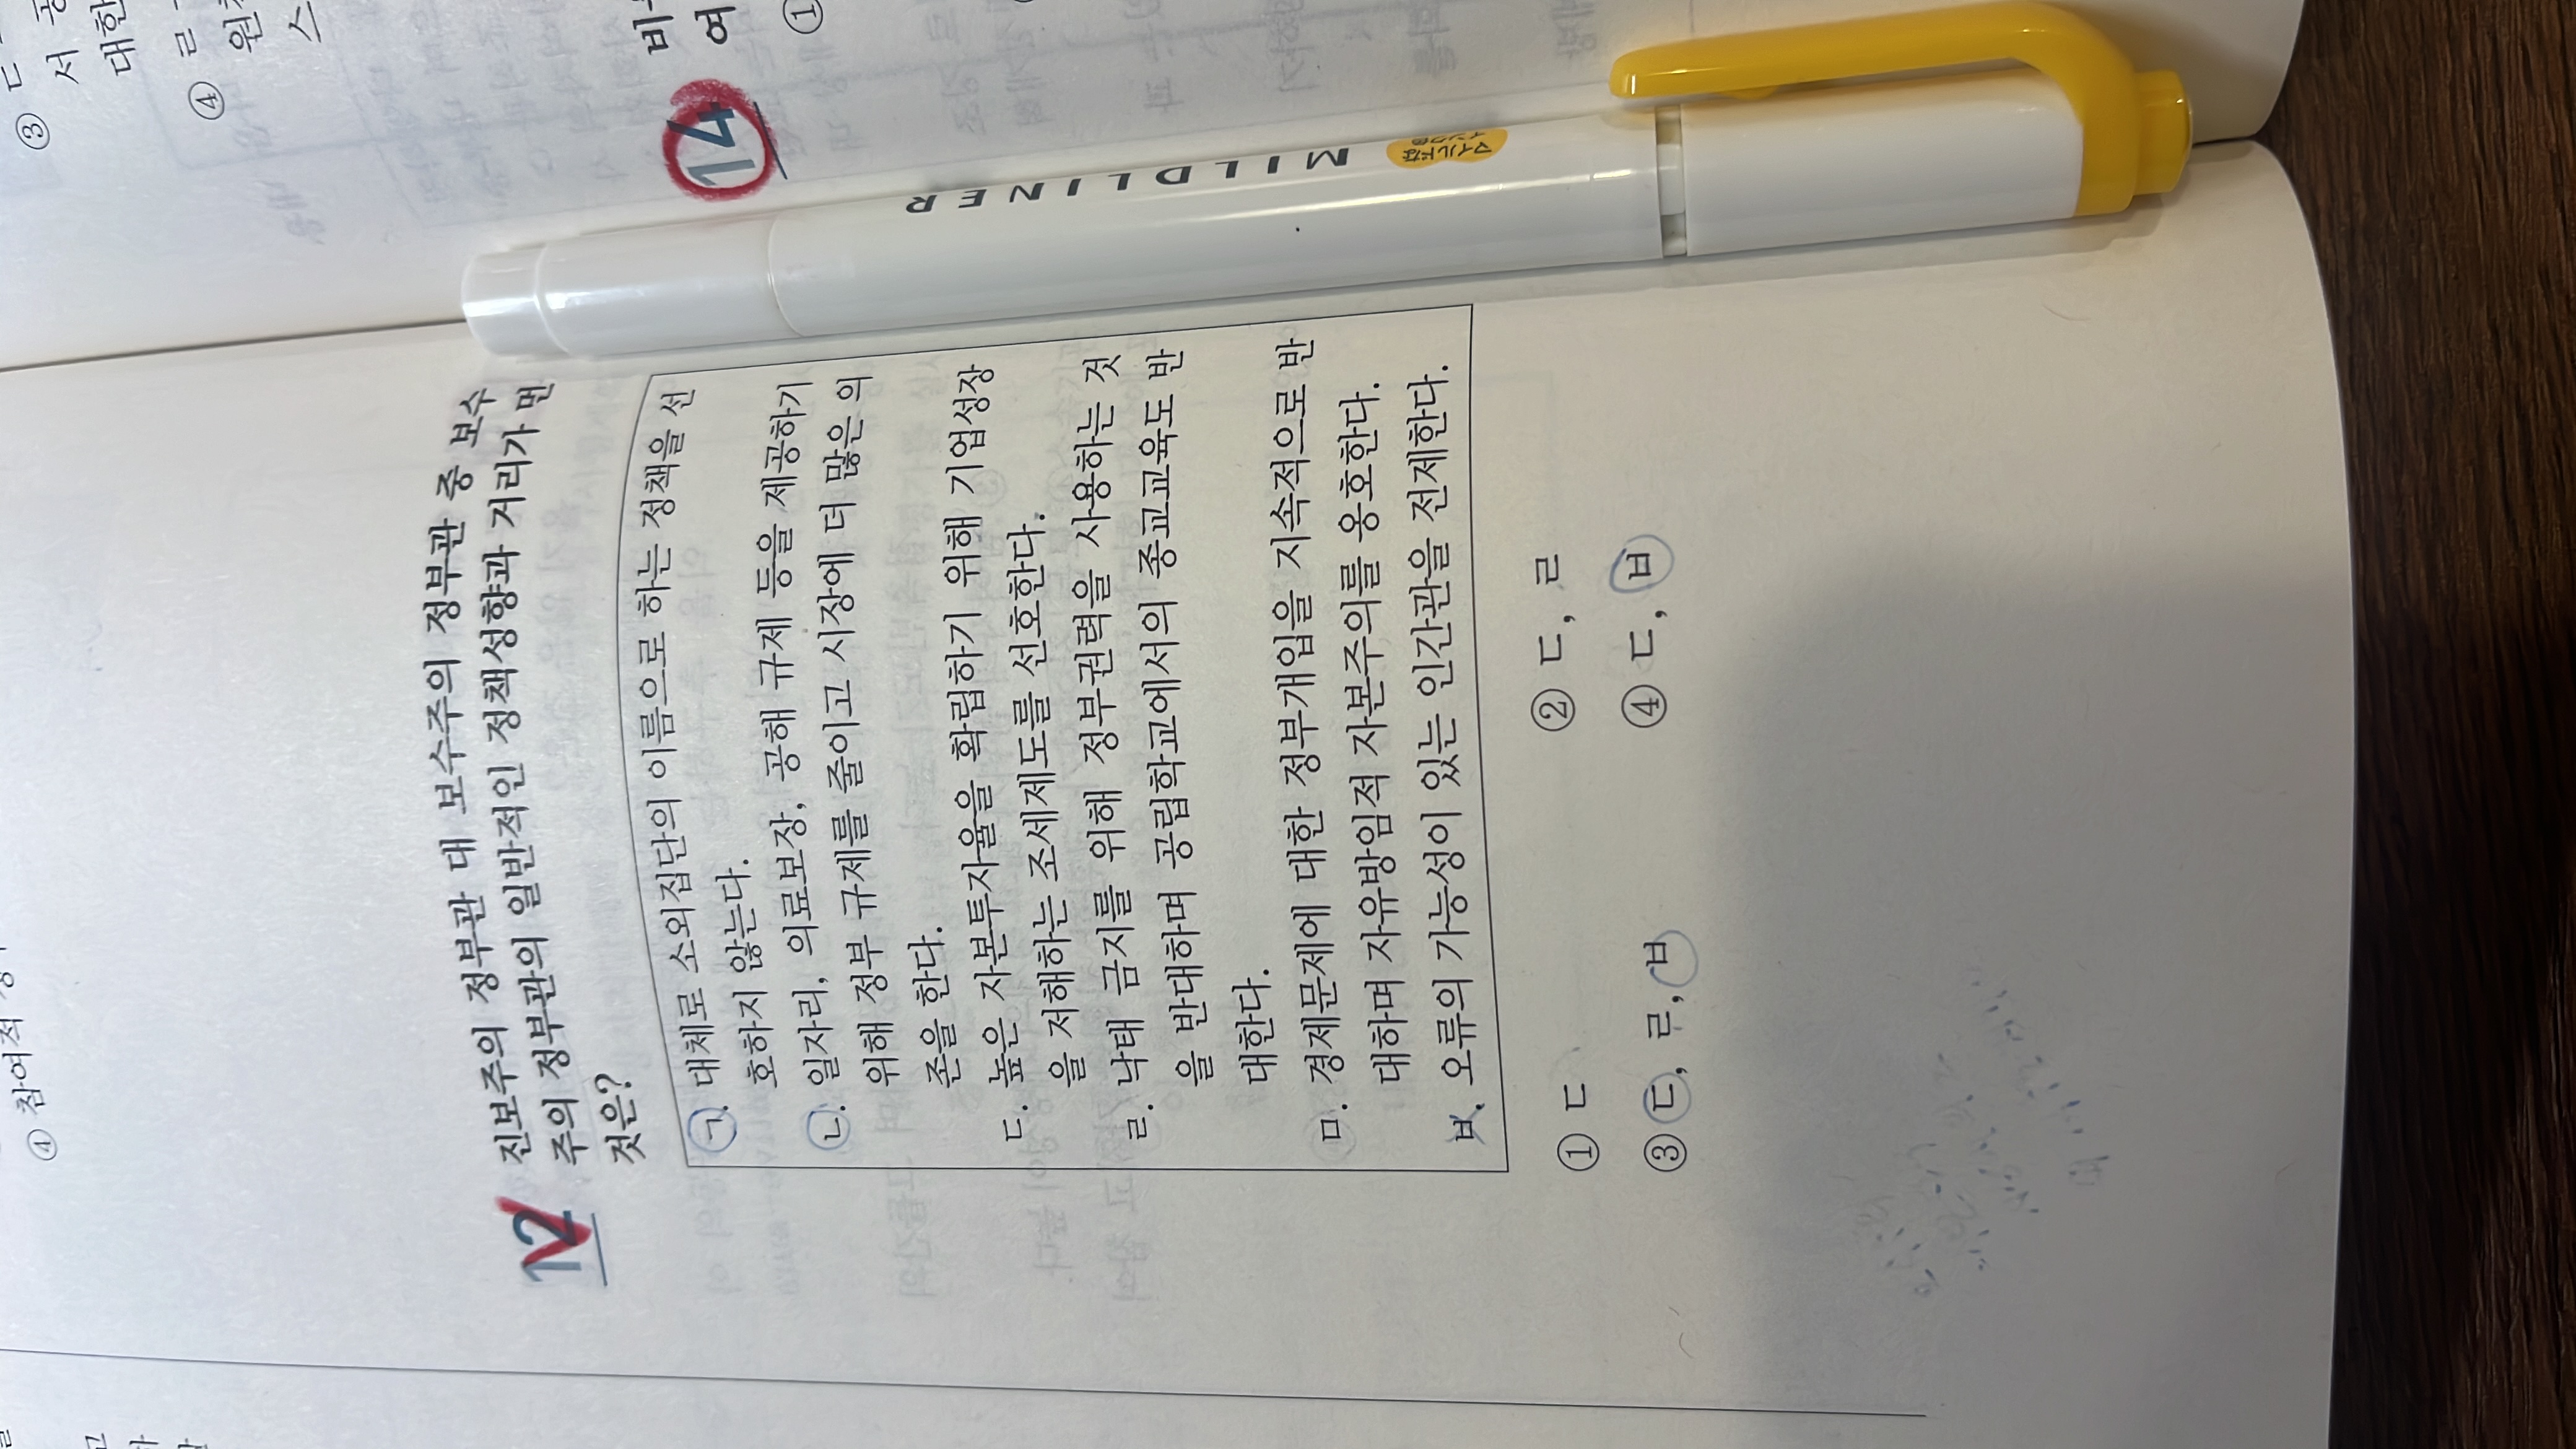 ③ ㄷ
서 공
대한
④ ㄹ
스
④ 참여적
12 진보주의 정부관 대 보수주의 정부관 중 보수
주의 정부관의 일반적인 정책성향과 거리가 먼
것은?
ㄱ. 대체로 소외집단의 이름으로 하는 정책을 선
호하지 않는다.
ㄴ. 일자리, 의료보장, 공해 규제 등을 제공하기
위해 정부 규제를 줄이고 시장에 더 많은 의
존을 한다.
ㄷ. 높은 자본투자율을 확립하기 위해 기업성장
을 저해하는 조세제도를 선호한다.
ㄹ. 낙태 금지를 위해 정부권력을 사용하는 것
을 반대하며 공립학교에서의 종교교육도 반
대한다.
ㅁ. 경제문제에 대한 정부개입을 지속적으로 반
대하며 자유방임적 자본주의를 옹호한다.
ㅂ. 오류의 가능성이 있는 인간관을 전제한다.
① ㄷ ② ㄷ, ㄹ
③ ㄷ, ㄹ, ㅂ ④ ㄷ, ㅂ
14
여
①
MILDLINER